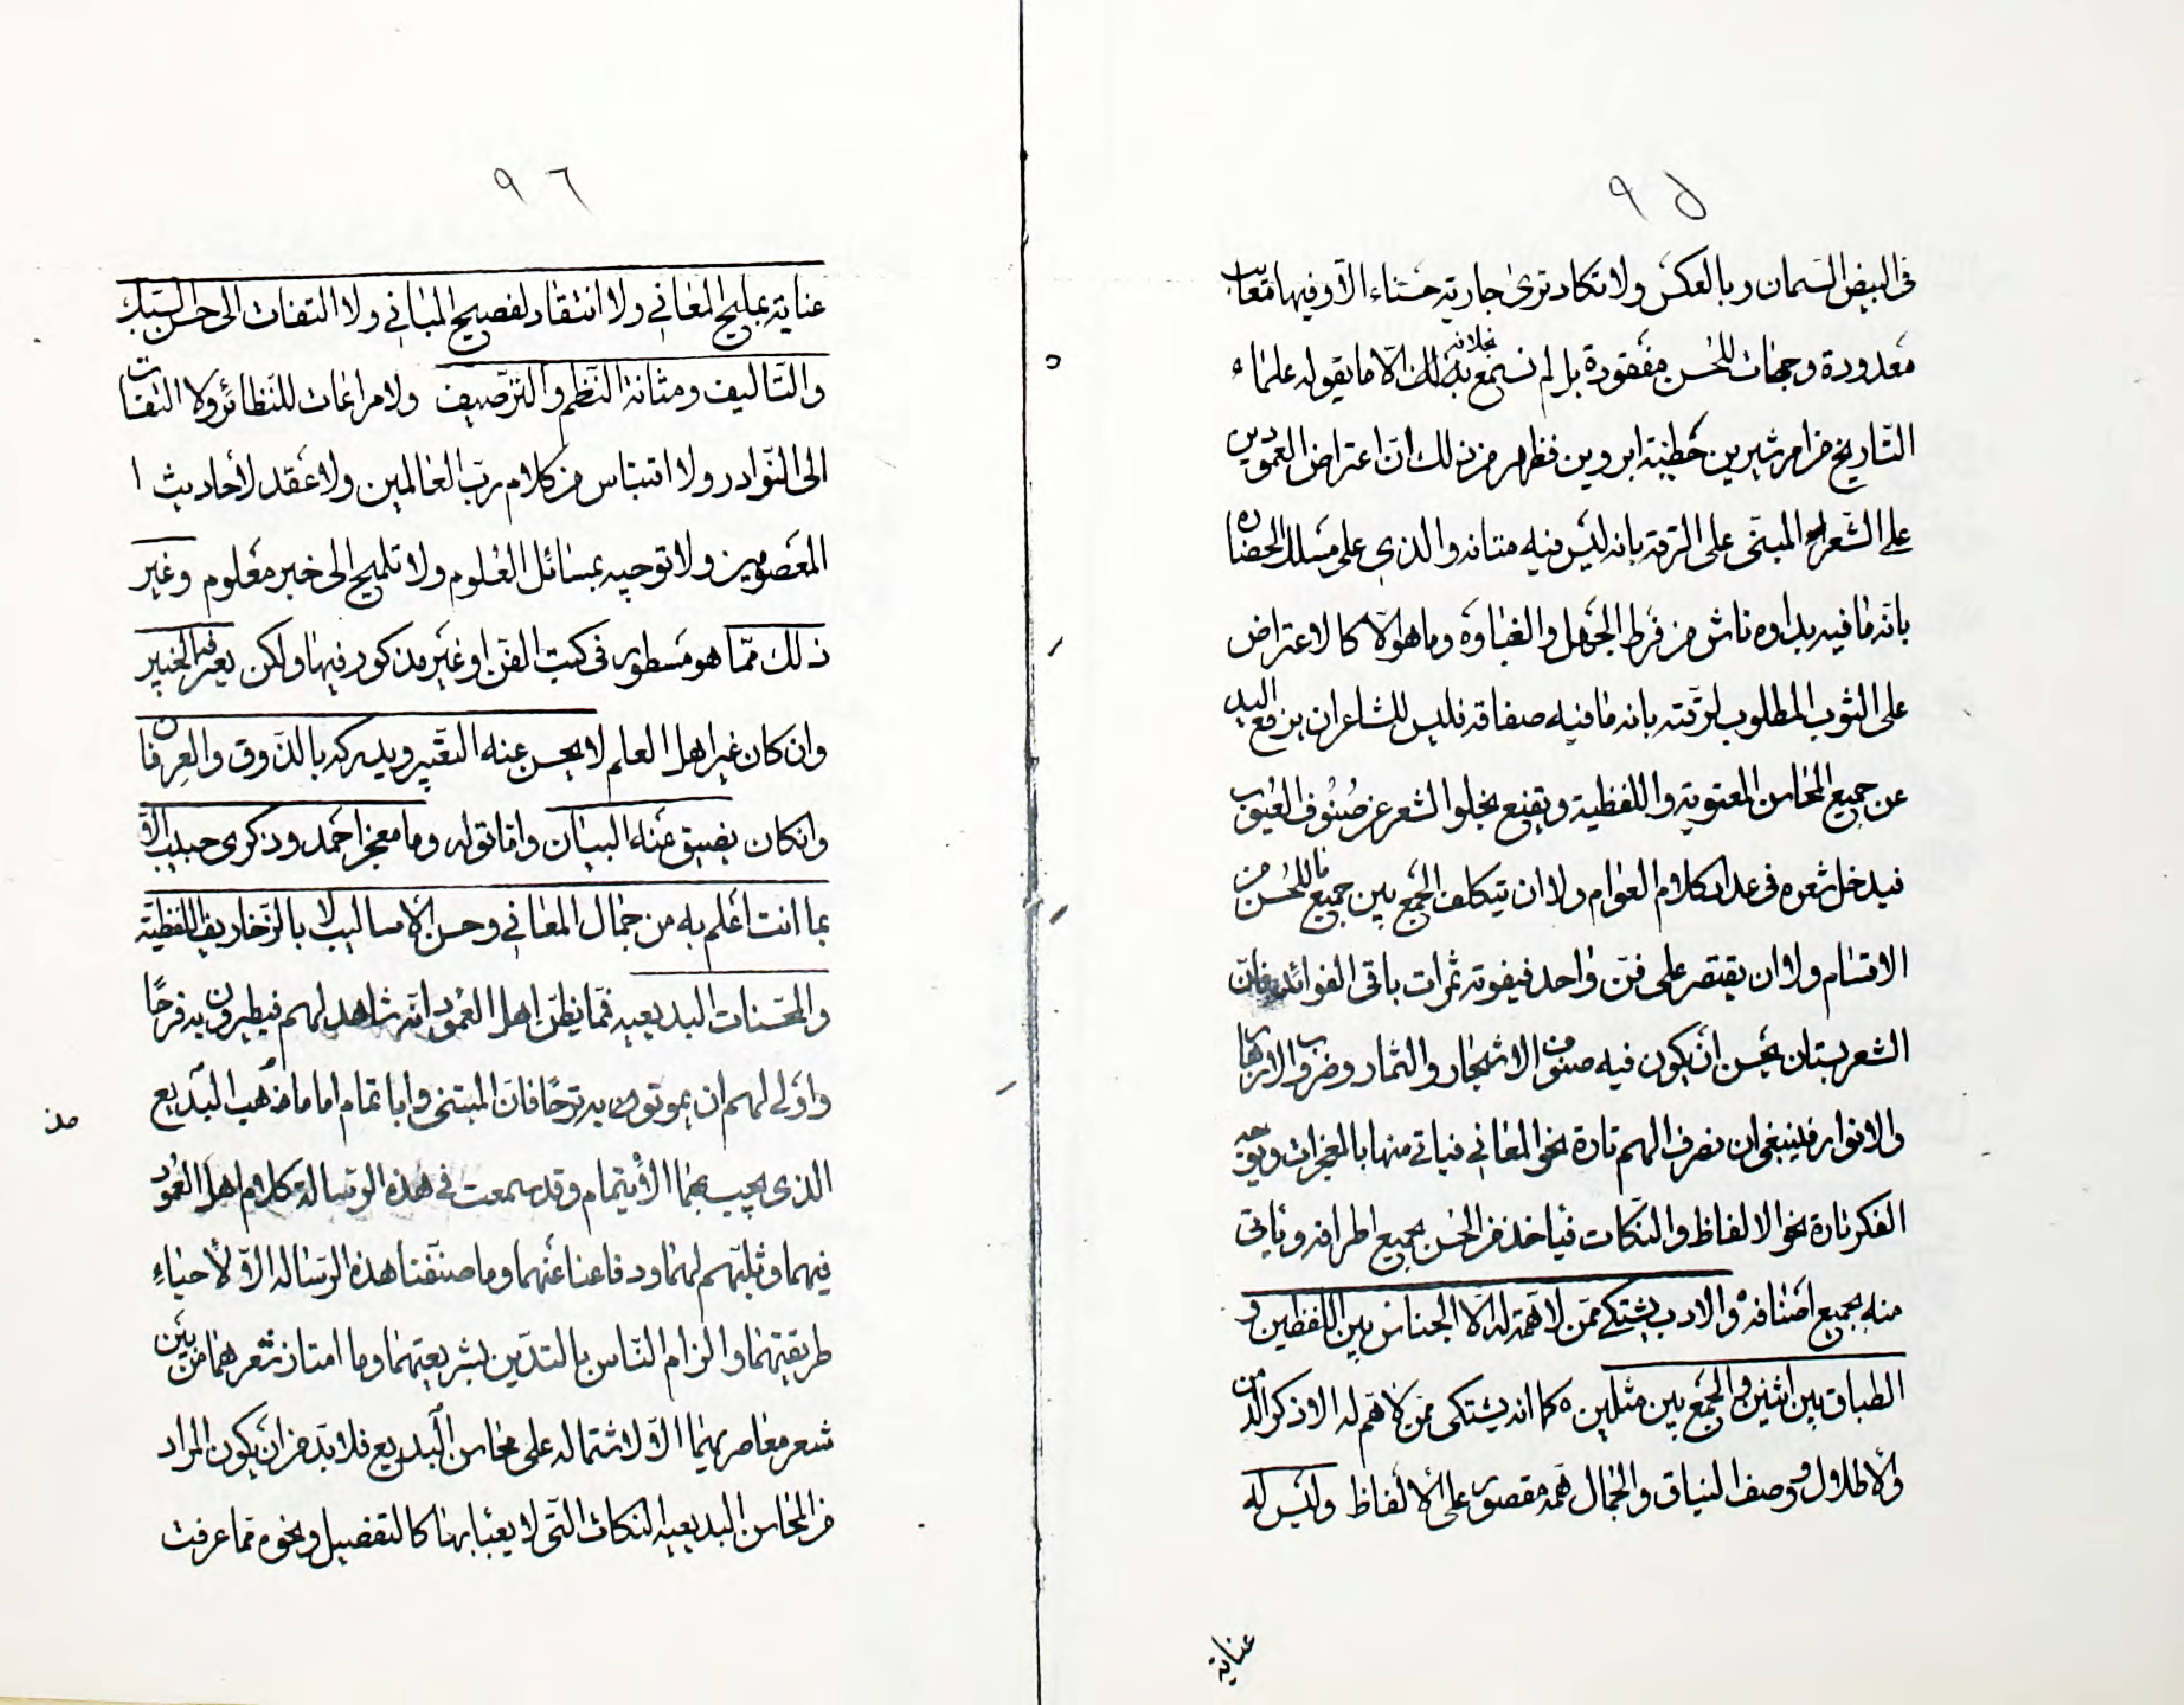 ٩٥
فى البيض السمان وبالعكس ولا تكاد ترى جارية حسناء الا وفيها معايب
معدودة وجهات للحسن مفقودة بل لم نسمع بخلافه الا ما يقوله علماء
التاريخ من امر شيرين خطيبة ابرويز فظهر من ذلك ان اعتراض العموديين
على الشعر المبنى على الرقة بانه ليس فيه متانه والذى على مسلك الحضارة
بانه ما فيه بداوه ناش من فرط الجهل والغباوة وما هو الا كالاعتراض
على الثوب المطلوب لرقته بانه ما فيه صفاقه فليس للشاعر ان يرفع اليد
عن جميع المحاسن المعنوية واللفظية ويقنع بخلو الشعر عن صنوف العيوب
فيدخل شعره فى عداد كلام العوام ولا ان يتكلف الجمع بين جميع ما للحسن من
الاقسام ولا ان يقتصر على فن واحد فيفوته ثمرات باقى الفوائد فان
الشعر بستان يحسن ان يكون فيه صنوف الاشجار والثمار وضروب الازهار
والانوار فينبغى ان نصرف الهم تارة نحو المعانى فياتى منها بالمعجزات ويوجه
الفكر تارة نحو الالفاظ والنكات فياخذ من الحسن بجميع اطرافه وياتى
منه بجميع اصنافه والادب يشتكى ممن لا همة له الا الجناس بين اللفظين و
الطباق بين اثنين والجمع بين مثلين كما انه يشتكى ممن لا هم له الا ذكر الدمن
والاطلال ووصف النياق والجمال همه مقصور على الالفاظ وليس له
عناية
٩٦
عناية بمليح المعانى ولا انتقاد لفصيح المبانى ولا التفات الى حسن السبك
والتاليف ومتانة النظم والترصيف ولا مراعات للنظائر ولا التفات
الى النوادر ولا اقتباس من كلام رب العالمين ولا عقد لأحاديث ا
المعصومين ولا توجيه بمسائل العلوم ولا تلميح الى خبر معلوم وغير
ذلك مما هو مسطور فى كتب الفن او غير مذكور فيها ولكن يعرفه الخبير
وان كان غير اهل العلم لا يحسن عنه التعبير ويدركه بالذوق والعرفان
وان كان يضيق عنه البيان واما قوله وما معجز احمد وذكرى حبيب الا
بما انت اعلم به من جمال المعانى وحسن الاساليب لا بالزخاريف اللفظية
والمحسنات البديعيه فمما يظن اهل العمود انه شاهد لهم فيطيرون به فرحًا
واولى لهم ان يموتون به ترحًا فان المتنبى وابا تمام اماما مذهب البديع
الذى يجب بهما الأيتمام وقد سمعت فى هذه الرسالة كلام اهل العمود
فيهما وثلبهم لهما ودفاعنا عنهما وما صنفنا هذه الرساله الا لأحياءِ
طريقتهما والزام الناس بالتدين بشريعتهما وما امتاز شعرهما من بين
شعر معاصريهما الا لاشتماله على محاسن البديع فلا بد من ان يكون المراد
من المحاسن البديعيه النكات التى لا يعبأ بها كالتفصيل ونحوه مما عرفت